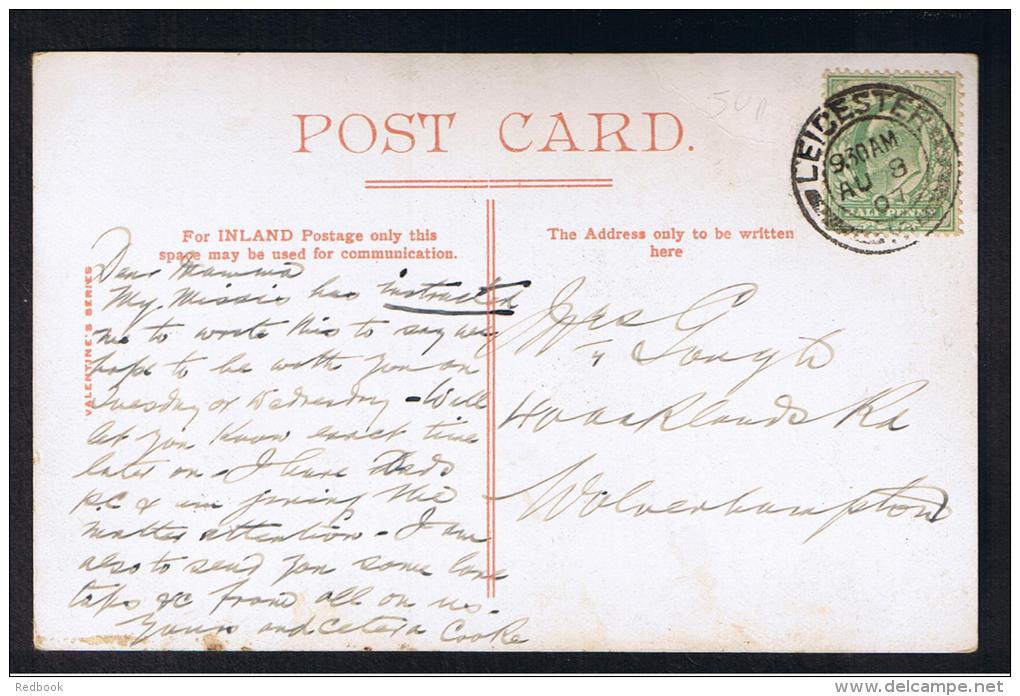 POST CARD.
For INLAND Postage only this
space may be used for communication.
The Address only to be written
here
VALENTINE'S SERIES
LEICESTER
930AM
AU 8
07
HALF PENNY
Dear Mamma
My Missis has instructed
me to write this to say we
hope to be with you on
Tuesday or Wednesday - Will
let you know exact time
later on - I have Dads
P.C & am giving the
matter attention - I am
also to send you some love
taps &c from all on us.
Yours and cetera Cooke
Mrs G
Gough
40 Oaklands Rd
Wolverhampton
Redbook
www.delcampe.net